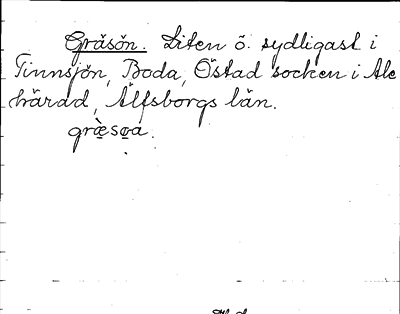 Gräsön. Liten ö. sydligast i
Tinnsjön, Boda, Östad socken i Ale
härad, Älfsborgs län.
græ̀søa.